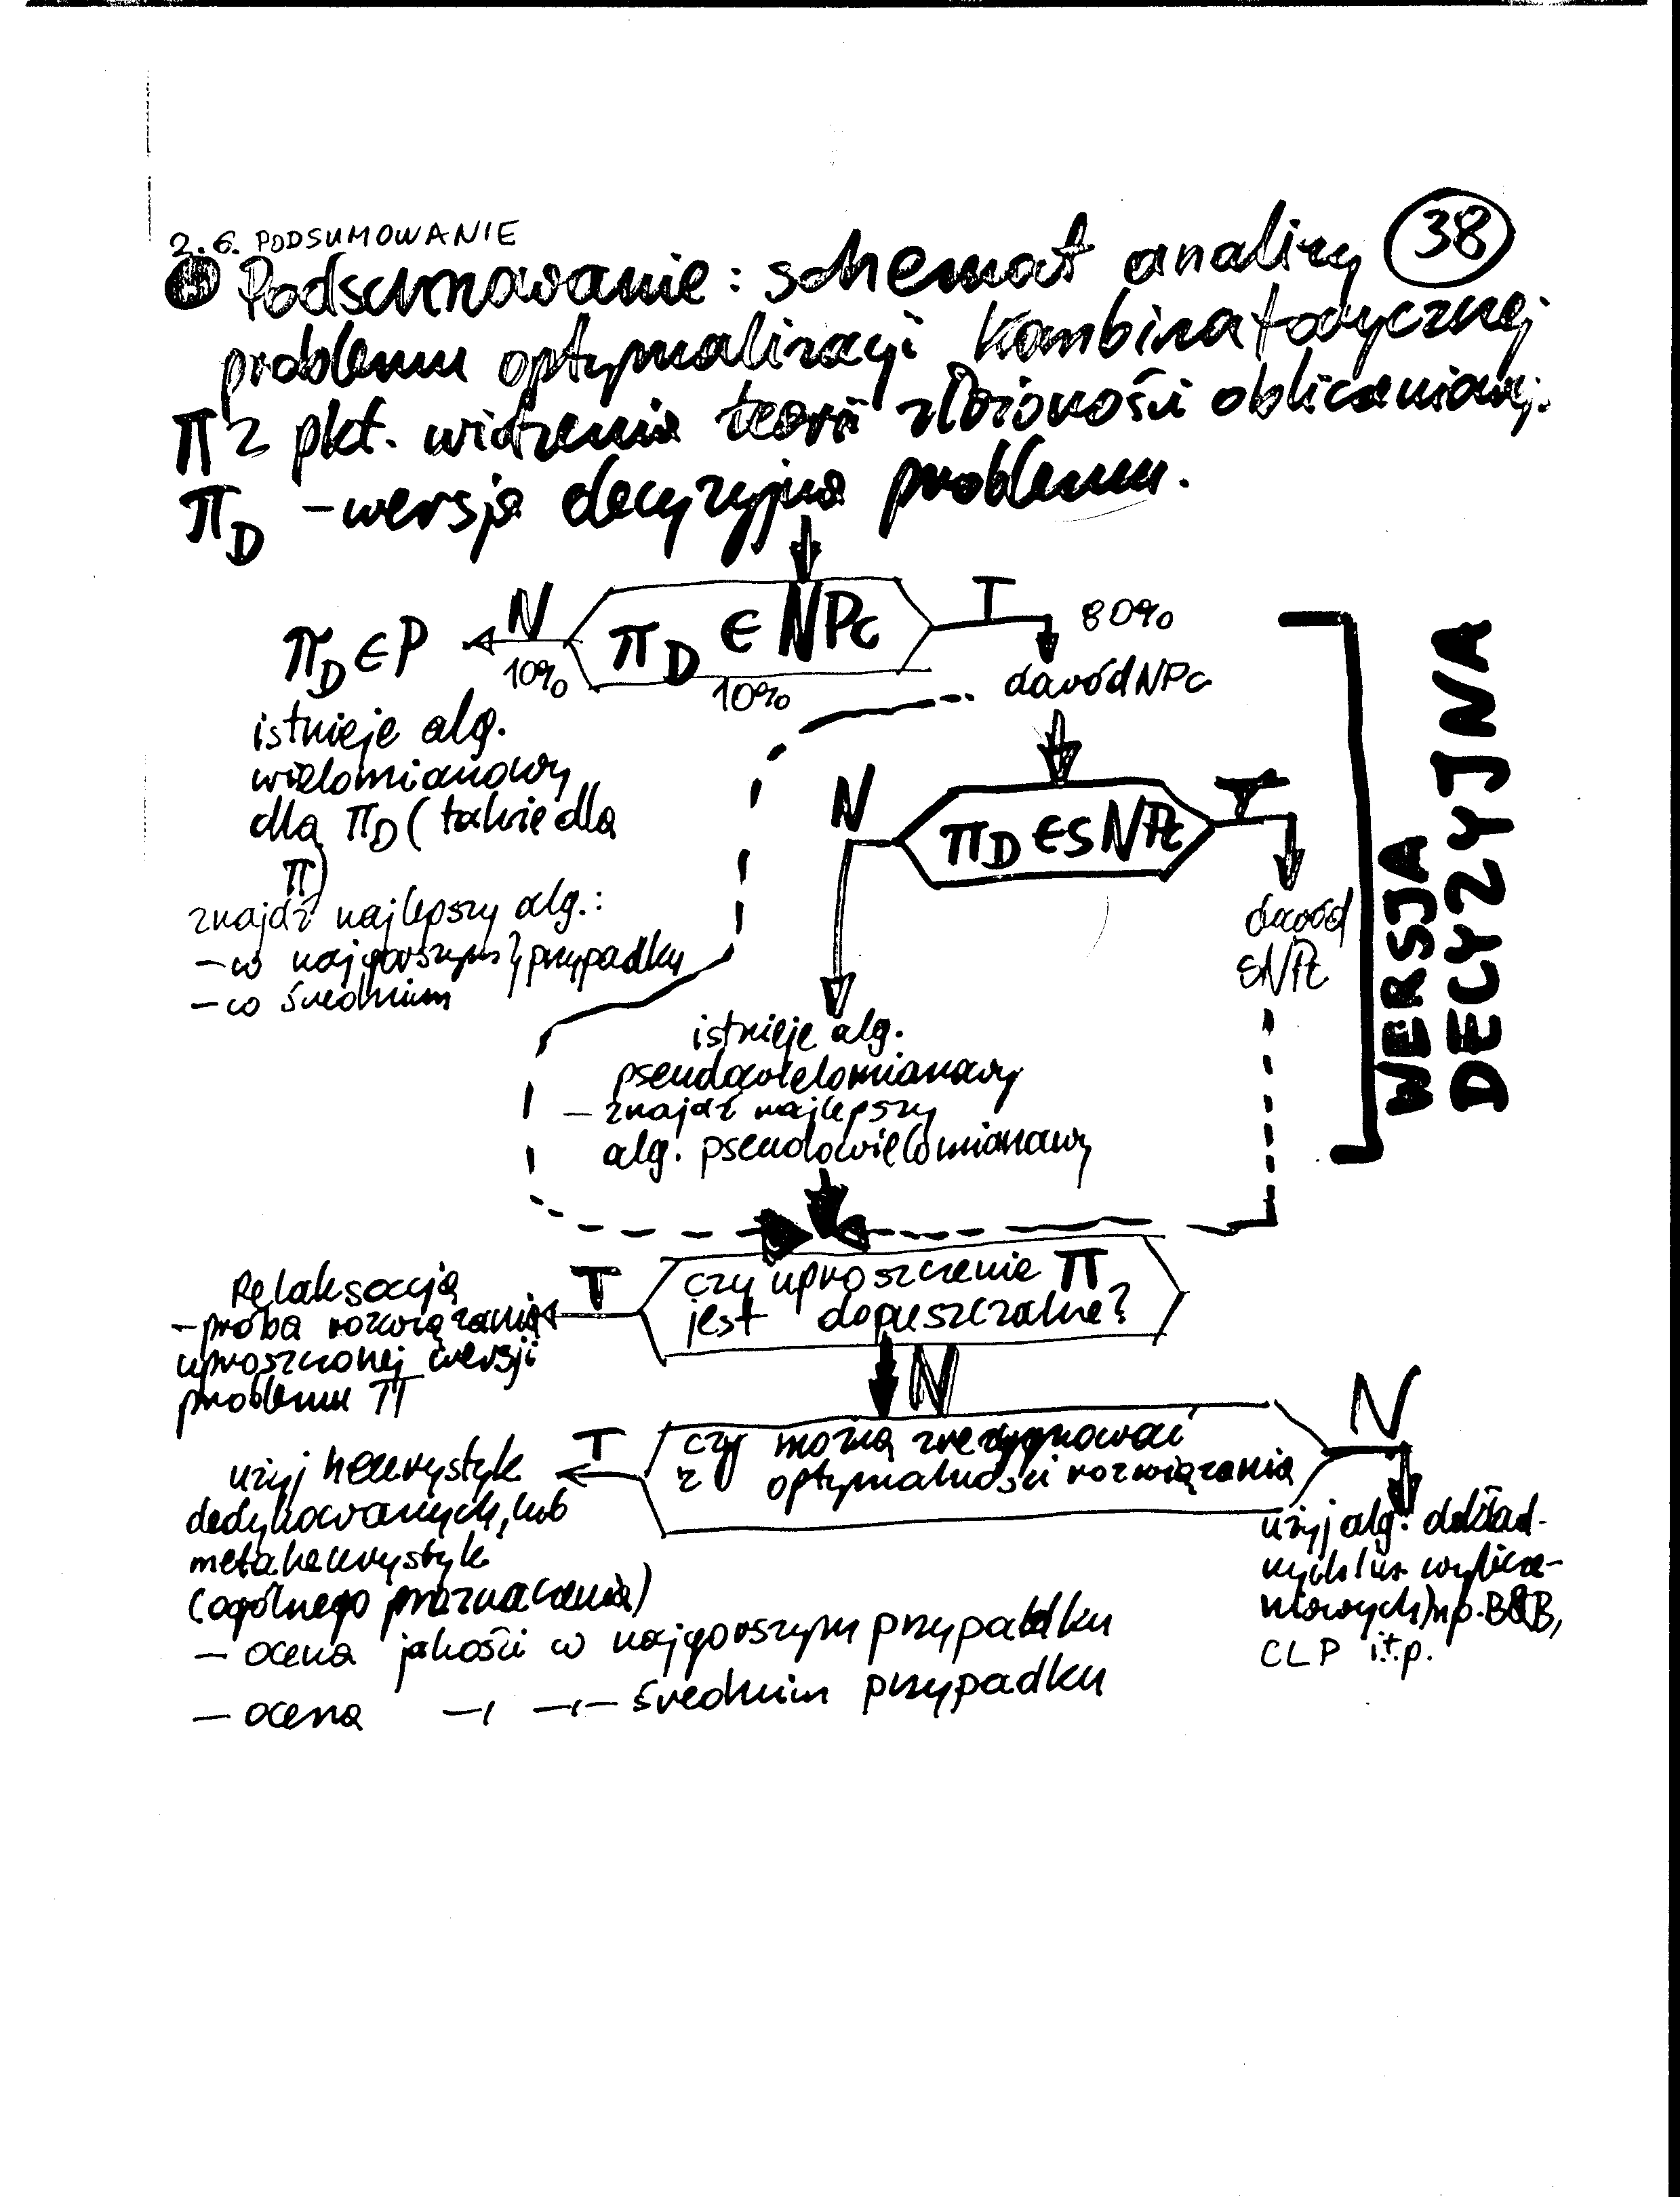 2.6. PODSUMOWANIE
38
Podsumowanie: schemat analizy
problemu optymalizacji kombinatorycznej
Π z pkt. widzenia teorii złożoności obliczeniowej.
Π_D - wersja decyzyjna problemu.
Π_D ∈ NPc
N
10%
10%
T
80%
Π_D ∈ P
dowód NPc
istnieje alg.
wielomianowy
dla Π_D (także dla
Π)
znajdź najlepszy alg.:
- w najgorszym } przypadku
- w średnim
Π_D ∈ sNPc
N
T
dowód
sNPc
WERSJA
DECYZYJNA
istnieje alg.
pseudowielomianowy
- znajdź najlepszy
alg. pseudowielomianowy
czy uproszczenie Π
jest dopuszczalne?
T
Relaksacja
- próba rozwiązania
uproszczonej wersji
problemu Π
N
czy można zrezygnować
z optymalności rozwiązania
T
N
użyj heurystyk
dedykowanych, lub
metaheurystyk
(ogólnego przeznaczenia)
- ocena jakości w najgorszym przypadku
- ocena -,- -,- średnim przypadku
użyj alg. dokład-
nych wylicze-
niowych) np. B&B,
CLP i.t.p.